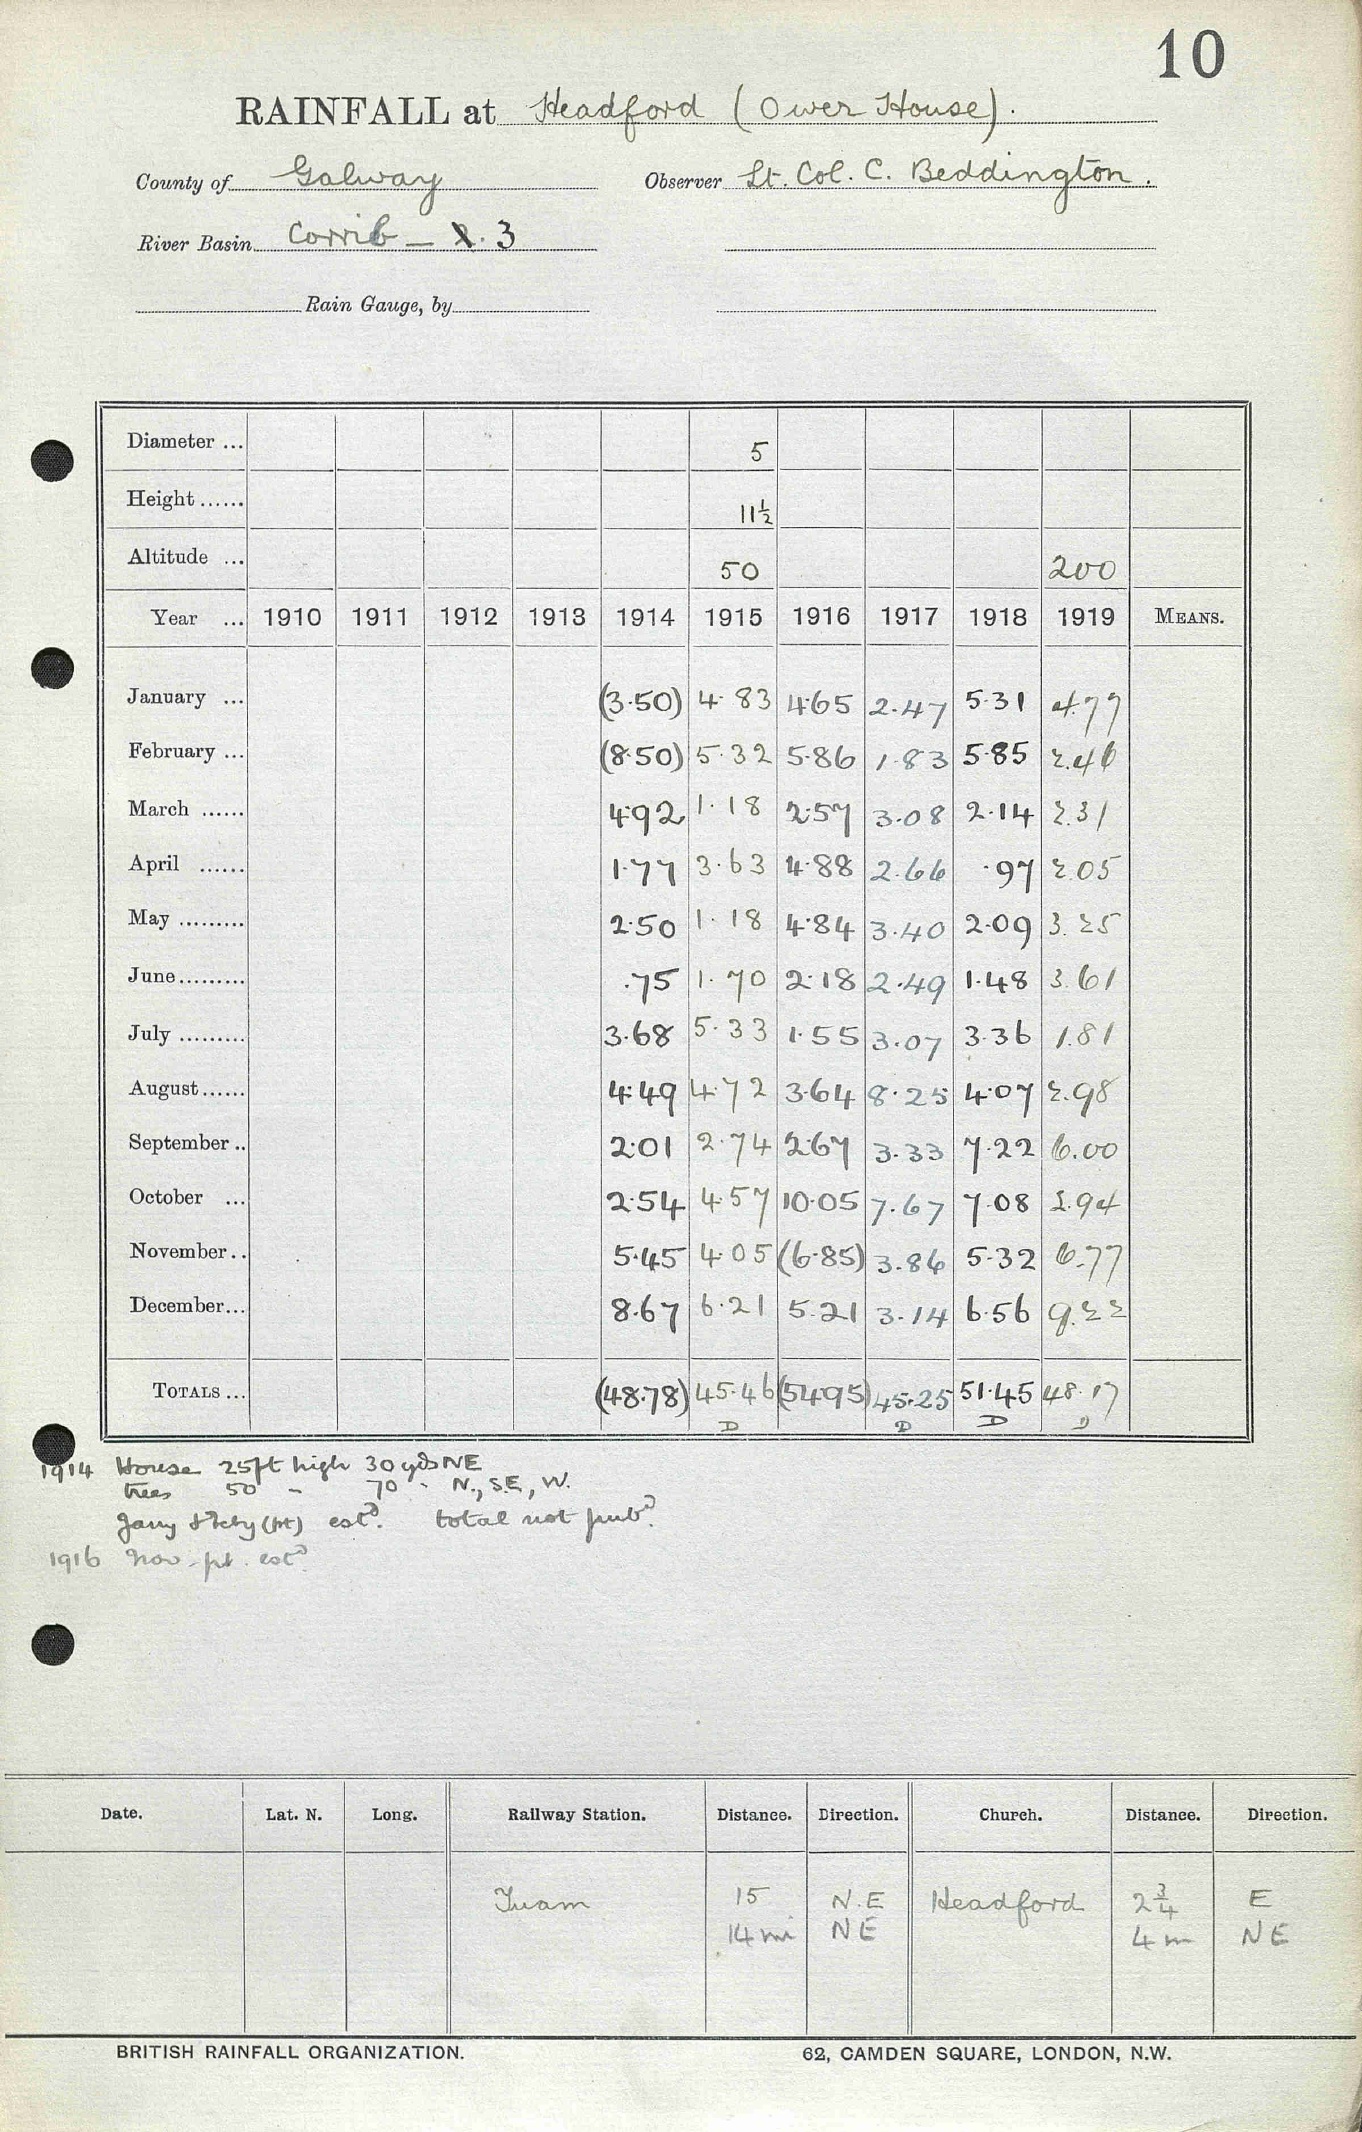 10
RAINFALL at Headford (Ower House).
County of Galway Observer Lt. Col. C. Beddington.
River Basin Corrib — 2. 3
Rain Gauge, by
Diameter ... 5
Height ...... 11½
Altitude ... 50 200
Year ... 1910 1911 1912 1913 1914 1915 1916 1917 1918 1919 MEANS.
January ... (3.50) 4.83 4.65 2.47 5.31 4.77
February ... (8.50) 5.32 5.86 1.83 5.85 2.46
March ...... 4.92 1.18 2.57 3.08 2.14 2.31
April ...... 1.77 3.63 4.88 2.66 .97 2.05
May ......... 2.50 1.18 4.84 3.40 2.09 3.25
June......... .75 1.70 2.18 2.49 1.48 3.61
July ......... 3.68 5.33 1.55 3.07 3.36 1.81
August...... 4.49 4.72 3.64 8.25 4.07 2.98
September .. 2.01 2.74 2.67 3.33 7.22 6.00
October ... 2.54 4.57 10.05 7.67 7.08 2.94
November.. 5.45 4.05 (6.85) 3.86 5.32 6.77
December... 8.67 6.21 5.21 3.14 6.56 9.22
TOTALS ... (48.78) 45.46 (54.95) 45.25 51.45 48.17
D D D D
1914 House 25ft high 30 yds NE
trees 50 " 70 " N., S.E, W.
Jany & Feby (pt) estd. total not pubd.
1916 Nov. pt. estd.
Date. Lat. N. Long. Railway Station. Distance. Direction. Church. Distance. Direction.
Tuam 15 N.E Headford 2¾ E
14 mi NE 4 m NE
BRITISH RAINFALL ORGANIZATION. 62, CAMDEN SQUARE, LONDON, N.W.